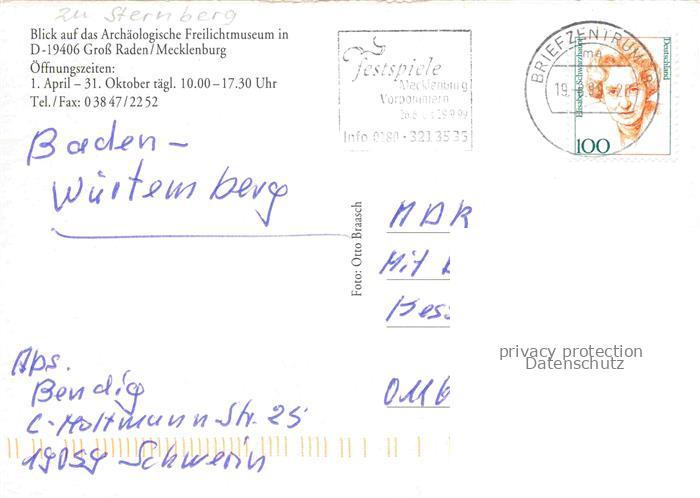 zu Sternberg
Blick auf das Archäologische Freilichtmuseum in
D-19406 Groß Raden/Mecklenburg
Öffnungszeiten:
1. April – 31. Oktober tägl. 10.00 – 17.30 Uhr
Tel./Fax: 0 38 47/22 52
Festspiele
Mecklenburg
Vorpommern
Info 0180 · 321 35 35
BRIEFZENTRUM
Elisabeth Schwarzhaupt
Deutschland
100
Baden-
Würtemberg
Foto: Otto Braasch
MDR
Mit
Hess
Abs.
Bendig
C.-Moltmann-Str. 25
19059 Schwerin
privacy protection
Datenschutz